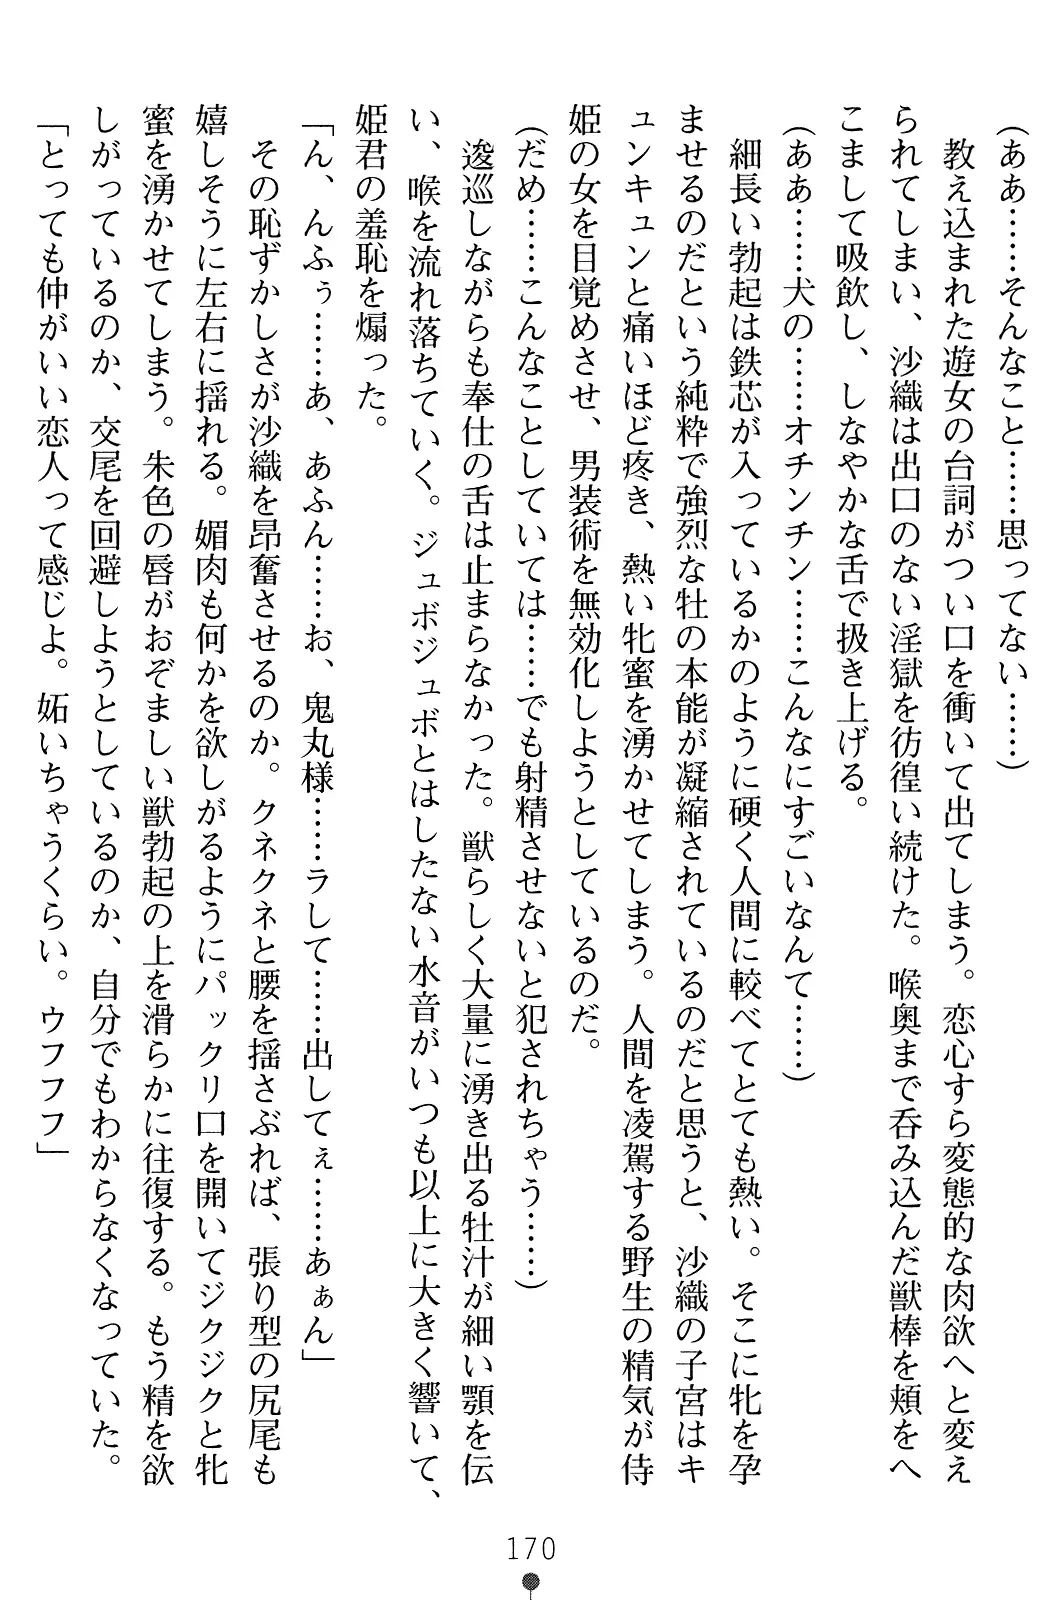 (ああ……そんなこと……思ってない……)
　教え込まれた遊女の台詞がつい口を衝いて出てしまう。恋心すら変態的な肉欲へと変え
られてしまい、沙織は出口のない淫獄を彷徨い続けた。喉奥まで呑み込んだ獣棒を頬をへ
こまして吸飲し、しなやかな舌で扱き上げる。
(ああ……犬の……オチンチン……こんなにすごいなんて……)
　細長い勃起は鉄芯が入っているかのように硬く人間に較べてとても熱い。そこに牝を孕
ませるのだという純粋で強烈な牡の本能が凝縮されているのだと思うと、沙織の子宮はキ
ュンキュンと痛いほど疼き、熱い牝蜜を湧かせてしまう。人間を凌駕する野生の精気が侍
姫の女を目覚めさせ、男装術を無効化しようとしているのだ。
(だめ……こんなことしていては……でも射精させないと犯されちゃう……)
　逡巡しながらも奉仕の舌は止まらなかった。獣らしく大量に湧き出る牡汁が細い顎を伝
い、喉を流れ落ちていく。ジュボジュボとはしたない水音がいつも以上に大きく響いて、
姫君の羞恥を煽った。
「ん、んふぅ……あ、あふん……お、鬼丸様……ラして……出してぇ……あぁん」
　その恥ずかしさが沙織を昂奮させるのか。クネクネと腰を揺さぶれば、張り型の尻尾も
嬉しそうに左右に揺れる。媚肉も何かを欲しがるようにパックリ口を開いてジクジクと牝
蜜を湧かせてしまう。朱色の唇がおぞましい獣勃起の上を滑らかに往復する。もう精を欲
しがっているのか、交尾を回避しようとしているのか、自分でもわからなくなっていた。
「とっても仲がいい恋人って感じよ。妬いちゃうくらい。ウフフフ」
170